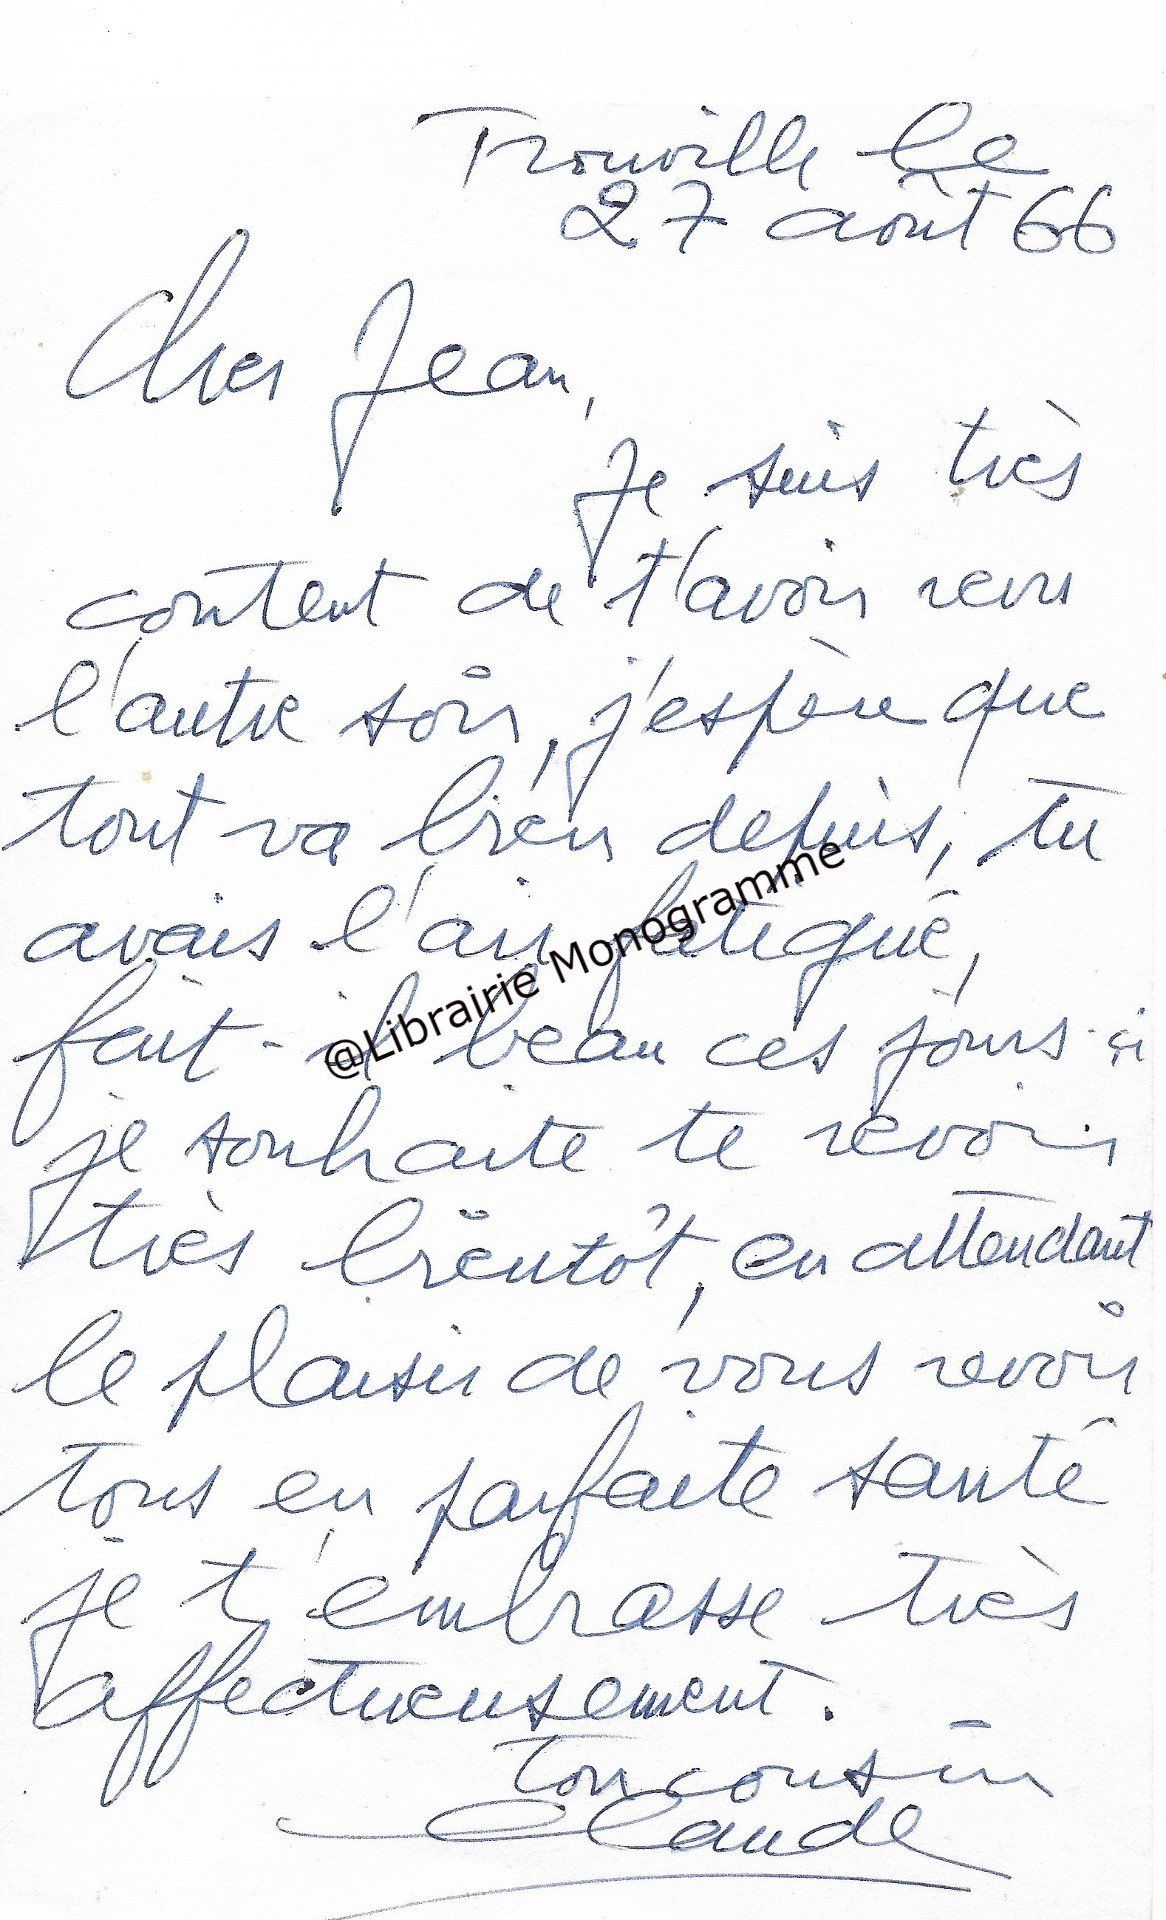 Trouville le
27 août 66
Cher Jean,
je suis très
content de t'avoir revu
l'autre soir, j'espère que
tout va bien depuis, tu
avais l'air fatigué,
fait-il beau ces jours-ci
je souhaite te revoir
très bientôt, en attendant
le plaisir de vous revoir
tous en parfaite santé
je t'embrasse très
affectueusement.
Ton cousin
Claude
@Librairie Monogramme